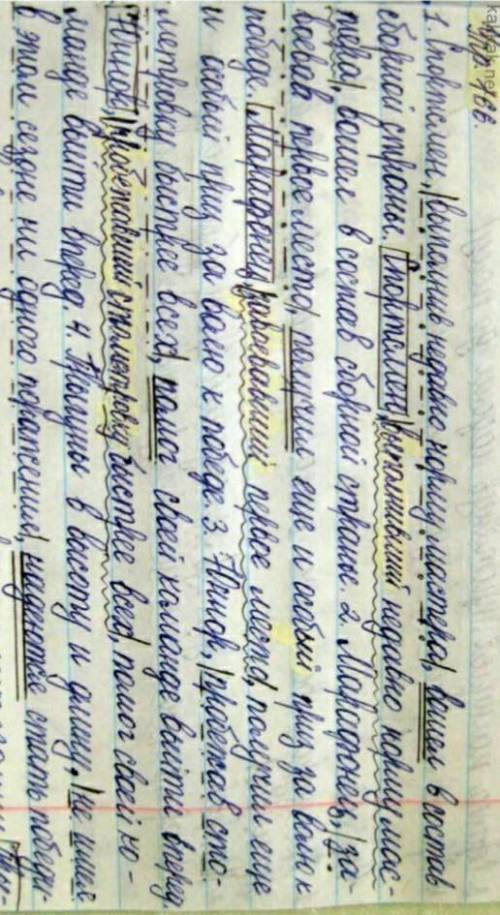 Упр. 166.
1. Спортсмен, выполнив недавно норму мастера, вошел в состав
сборной страны. Спортсмен, выполнивший недавно норму мас-
тера, вошел в состав сборной стране. 2. Марафонец, за-
воевав первое место, получил еще и особый приз за волю к
победе. Марафонец, завоевавший первое место, получил еще
и особый приз за волю к победе. 3. Юниор, пробежав сто-
метровку быстрее всех, помог своей команде выйти вперед
Юниор, пробежавший стометровку быстрее всех, помог своей ко-
манде выйти вперед. 4. Прыгуны в высоту и длину, не имея
в этом сезоне ни одного поражения, надеются стать победи-